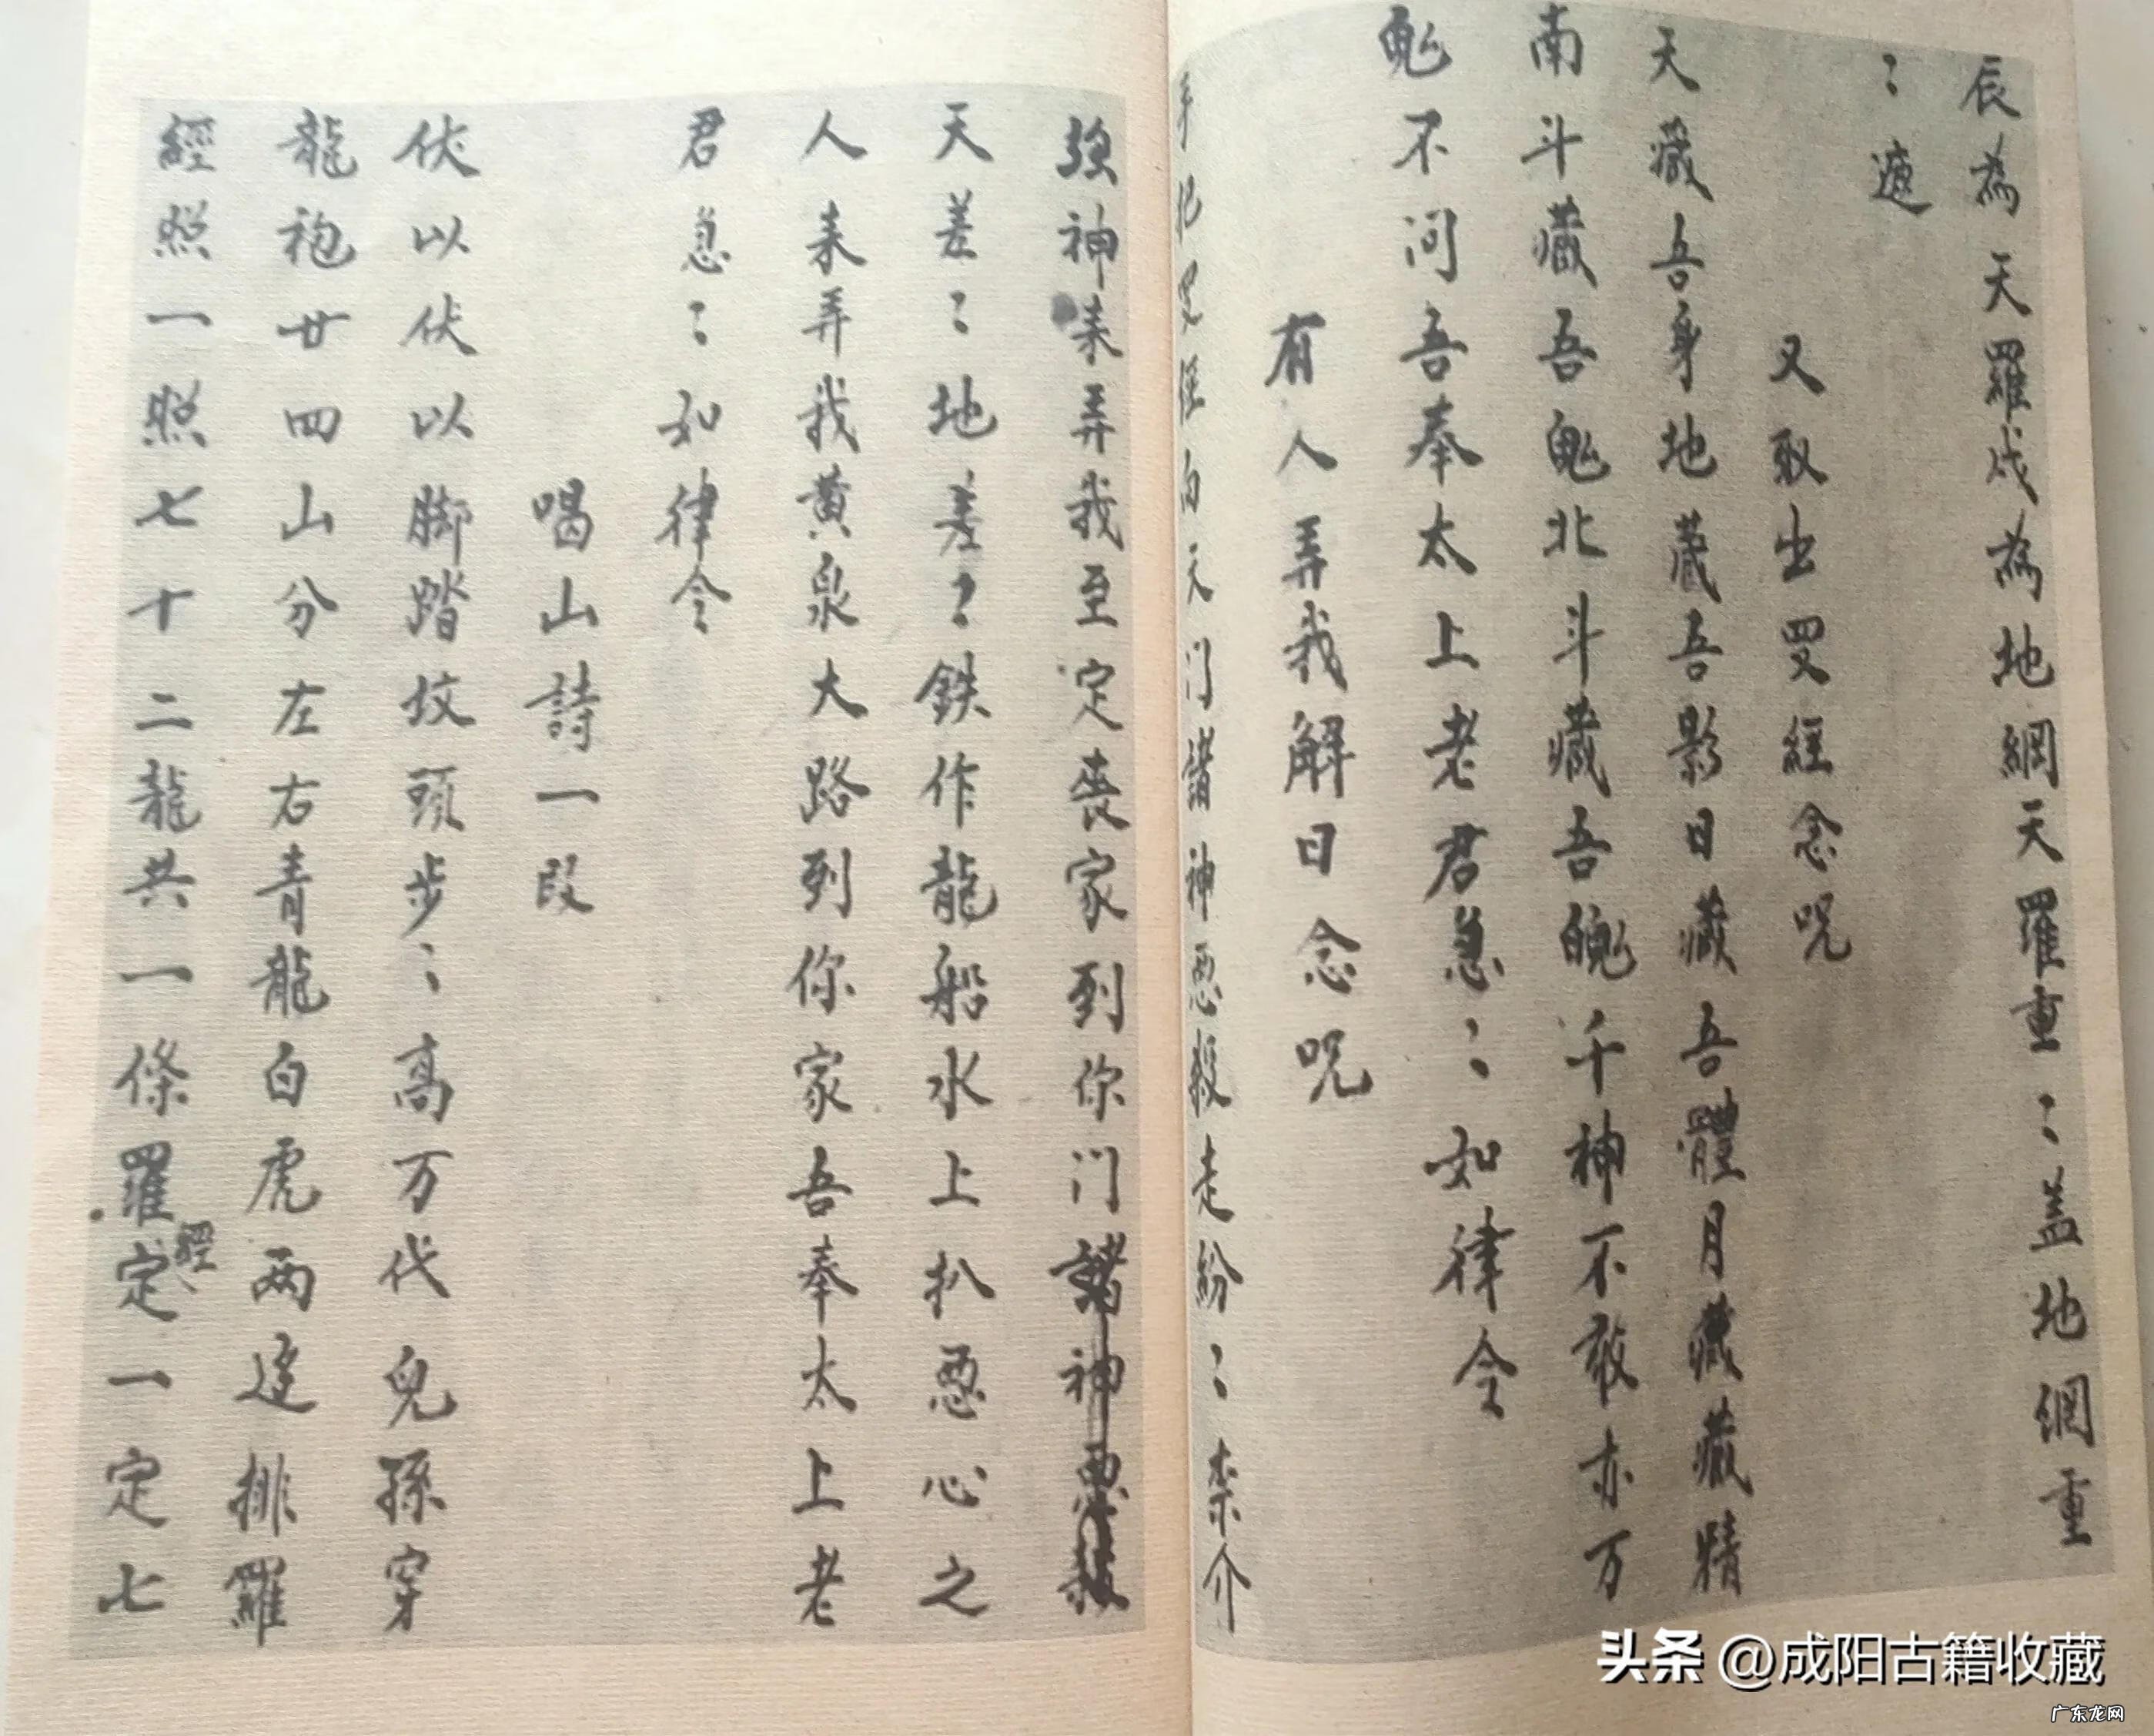 辰為天羅戌為地網天羅重〻盖地網重
〻遮
又取出罗經念呪
天藏吾身地藏吾影日藏吾體月藏藏精
南斗藏吾䰟北斗藏吾魄千神不敢亦万
鬼不问吾奉太上老君急〻如律令
有人弄我解日念呪
手把罗经向天门諸神恶殺走紛〻禁介
強神来弄我至定丧家到你门諸神恶殺
天差〻地差〻鉄作龍船水上扒恶心之
人来弄我黄泉大路到你家吾奉太上老
君急〻如律令
喝山詩一段
伏以伏以脚踏坟頭步〻高万代兒孫穿
龍袍廿四山分左右青龍白虎两边排羅
經照一照七十二龍共一條羅經定一定七
头条 @成阳古籍收藏
广东龙网